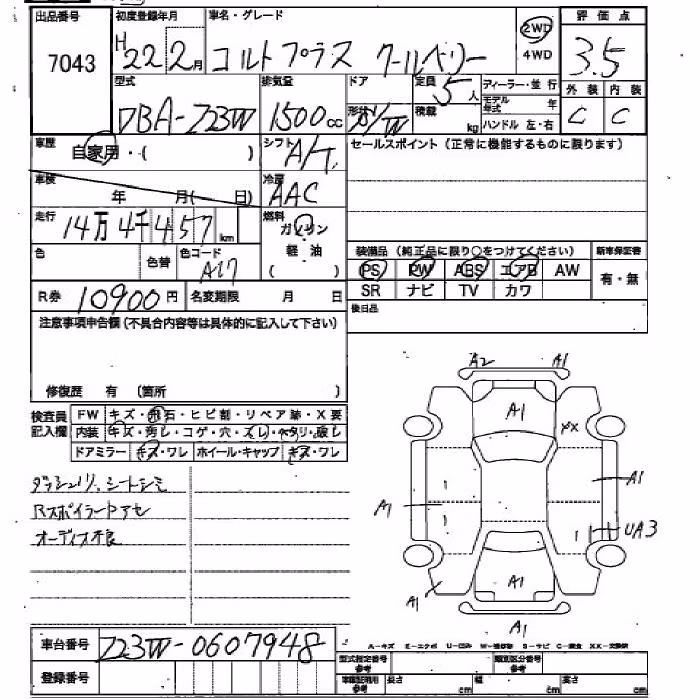 出品番号 初度登録年月 車名・グレード 評価点
7043 H22 2月 コルトプラス クールベリー 2WD 4WD 3.5
型式 排気量 ドア 定員 ディーラー・並行 外装 内装
DBA-Z23W 1500cc 形状 5/W 5人 積載 kg モデル年式 年 ハンドル 左・右 C C
車歴 自家用・( ) シフト A/T セールスポイント(正常に機能するものに限ります)
車検 年 月( 日) 冷房 AAC
走行 14万4千457km 燃料 ガソリン 軽・油 ( )
色 色替 色コード A17
装備品(純正品に限り○をつけてください) 新車保証書
PS PW ABS エアB AW 有・無
SR ナビ TV カワ
R券 10900円 名変期限 月 日 後日品
注意事項申告欄(不具合内容等は具体的に記入して下さい)
修復歴 有 (箇所 )
検査員記入欄 FW キズ・飛石・ヒビ割・リペア跡・X要
内装 キズ・汚レ・コゲ・穴・スレ・ヘタリ・破レ
ドアミラー キズ・ワレ ホイール・キャップ キズ・ワレ
ダッシュノリ、シートシミ
Rスポイラードアセ
オーディオ不良
A2 A1
A1
XX
A1
A1
UA3
A1
A1
A1
車台番号 Z23W-0607948
登録番号
A-キズ E-エクボ U-凹み W-補修跡 S-サビ C-腐食 XX-交換済
型式指定番号 参考 類別区分番号 参考
車庫証明用 参考 長さ cm 幅 cm 高さ cm